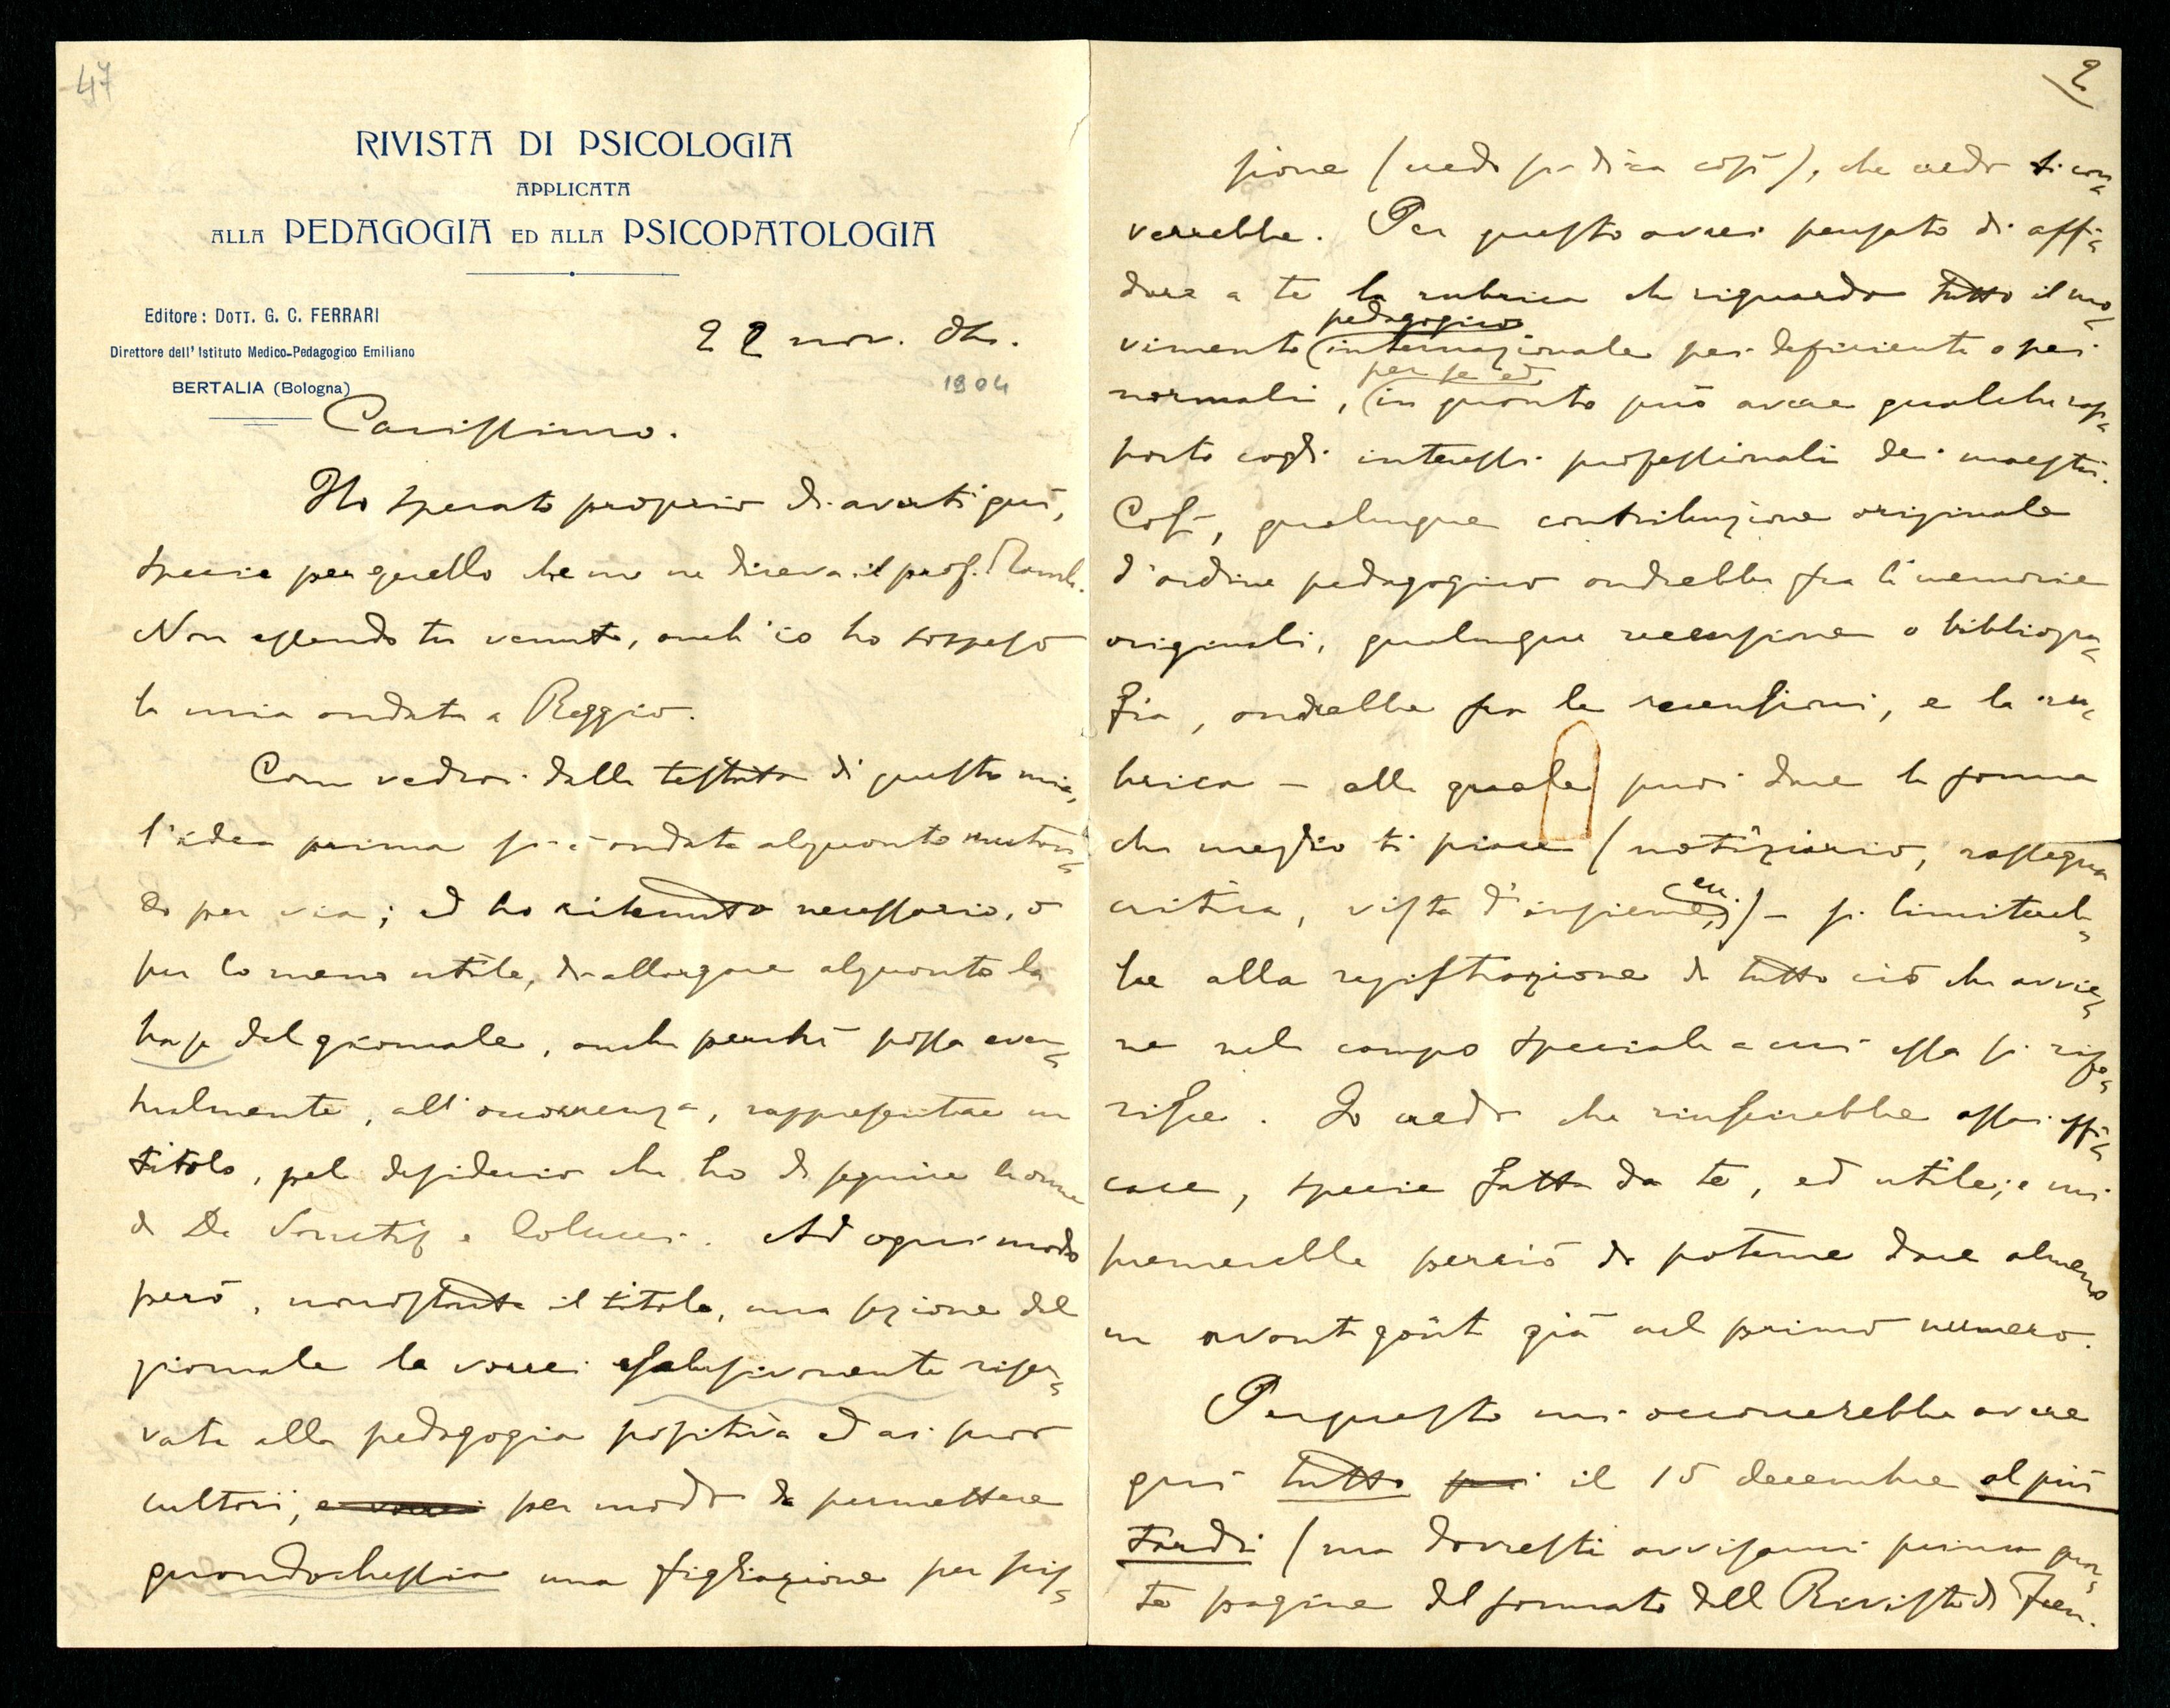 47
RIVISTA DI PSICOLOGIA
APPLICATA
ALLA PEDAGOGIA ED ALLA PSICOPATOLOGIA
Editore: DOTT. G. C. FERRARI
Direttore dell' Istituto Medico-Pedagogico Emiliano
BERTALIA (Bologna)
22 nov.
1904
Carissimo.
Ho sperato proprio di averti qui,
specie per quello che me ne diceva il prof.
Non essendo tu venuto, anch'io ho sospeso
la mia andata a Reggio.
Come vedrai dalla testata di questa mia,
l'idea prima si è andata alquanto mutan=
do per via; ed ho ritenuto necessario, o
per lo meno utile, di allargare alquanto la
base del giornale, anche perché possa even=
tualmente, all'occorrenza, rappresentare un
titolo, pel desiderio che ho di seguire le orme
di De Sanctis e Colucci. Ad ogni modo
però, nonostante il titolo, una sezione del
giornale la vorrei esclusivamente riser=
vata alla pedagogia positiva ed ai suoi
cultori, e vorrei per modo da permettere
quandochessia una figliazione per scis=
2
sione (credo si dica così), che credo ti con=
verrebbe. Per questo avrei pensato di affi=
dare a te la rubrica che riguarda tutto il mo=
pedagogico
vimento internazionale pei deficienti o pei
per se ed
normali, in quanto può avere qualche rap=
porto cogli interessi professionali dei maestri.
Così, qualunque contribuzione originale
d'ordine pedagogico andrebbe fra le memorie
originali, qualunque recensione o bibliogra=
fia, andrebbe fra le recensioni, e la ru=
brica – alla quale puoi dare la forma
che meglio ti piace (notiziario, rassegna
critica, vista d'insieme, ecc) – si limitereb=
be alla registrazione di tutto ciò che avvie=
ne nel campo speciale a cui essa si rife=
risce. Io credo che riuscirebbe assai effi=
cace, specie fatta da te, ed utile; e mi
premerebbe perciò di poterne dare almeno
un avant goût già nel primo numero.
Per questo mi occorrerebbe avere
qui tutto per il 15 decembre al più
tardi (ma dovresti avvisarmi prima quan=
te pagine del formato della Rivista di Fren.